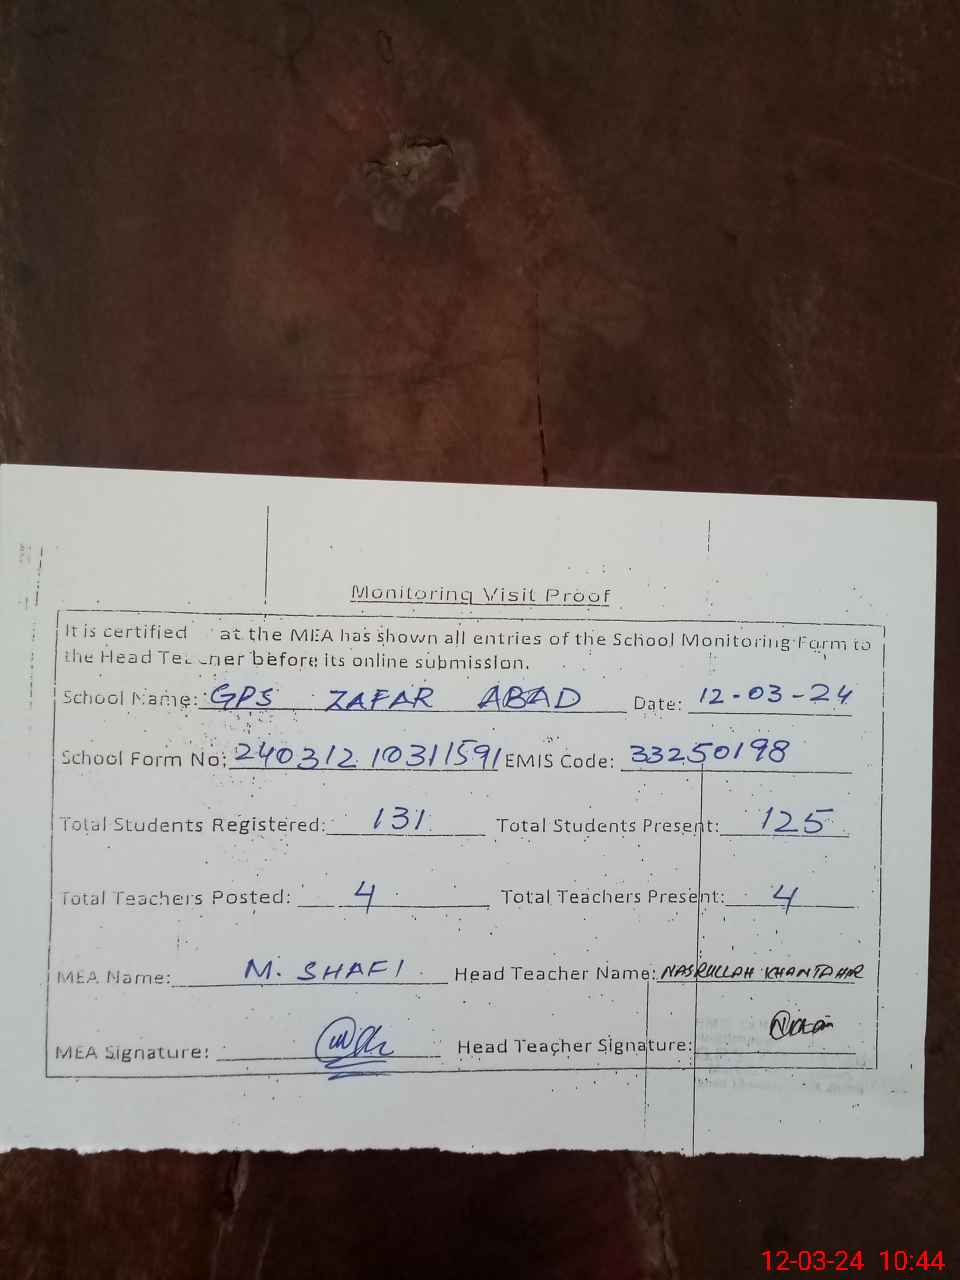 Monitoring Visit Proof
It is certified at the MEA has shown all entries of the School Monitoring Form to
the Head Teacher before its online submission.
School Name: GPS ZAFAR ABAD Date: 12-03-24
School Form No: 240312 10311591 EMIS Code: 33250198
Total Students Registered: 131 Total Students Present: 125
Total Teachers Posted: 4 Total Teachers Present: 4
MEA Name: M. SHAFI Head Teacher Name: NASRULLAH KHAN TAHIR
MEA Signature: Head Teacher Signature:
12-03-24 10:44